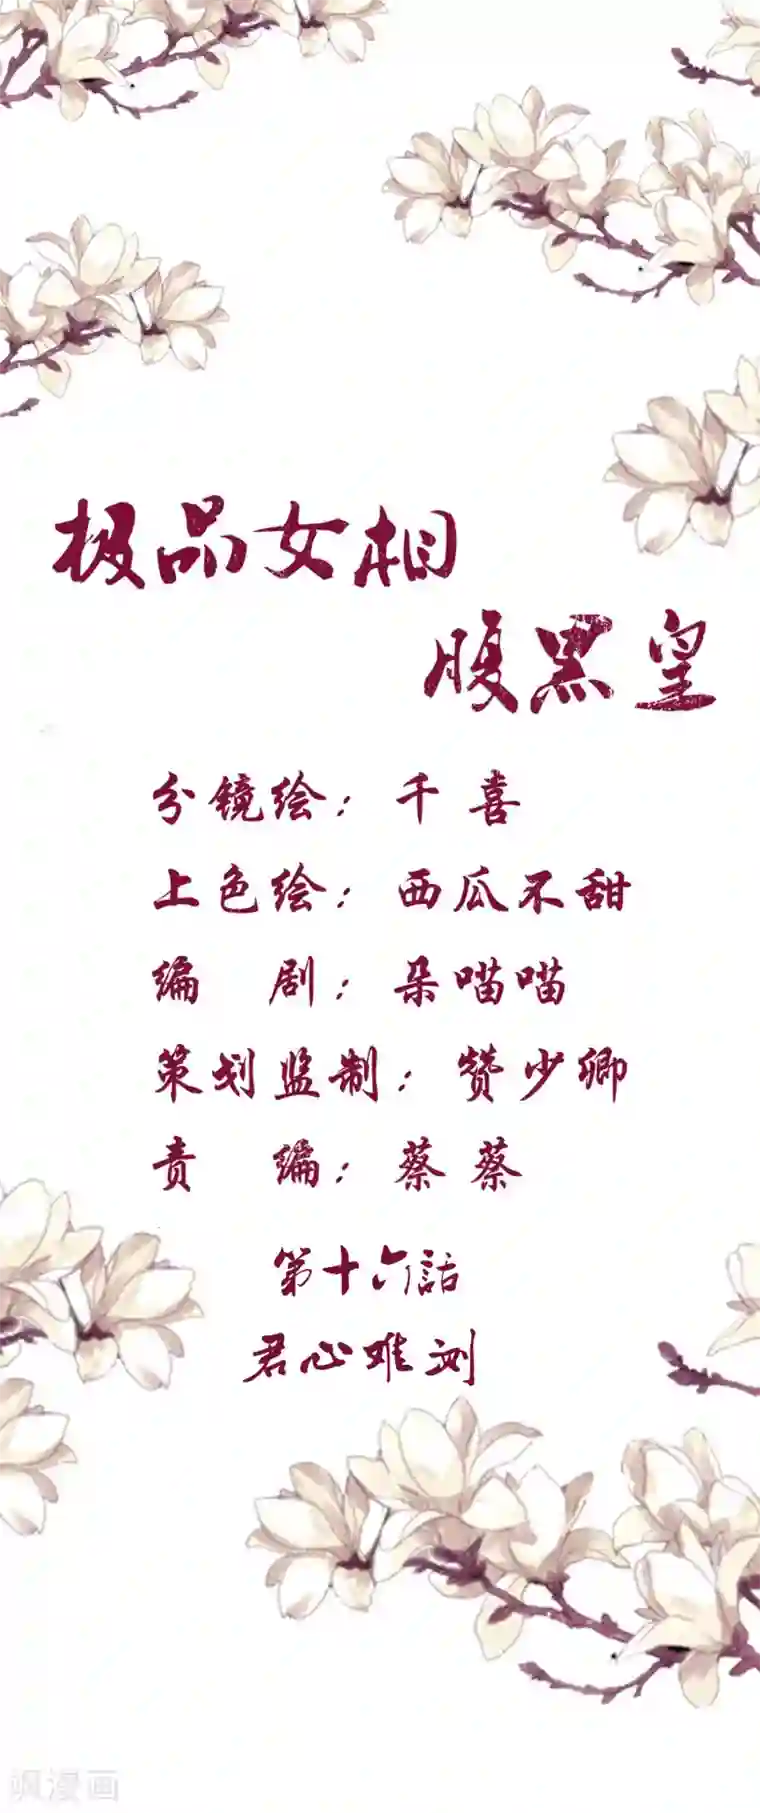 极品女相
腹黑皇
分镜绘：千喜
上色绘：西瓜不甜
编剧：朵喵喵
策划监制：赞少卿
责编：蔡蔡
第十六話
君心难测
飒漫画